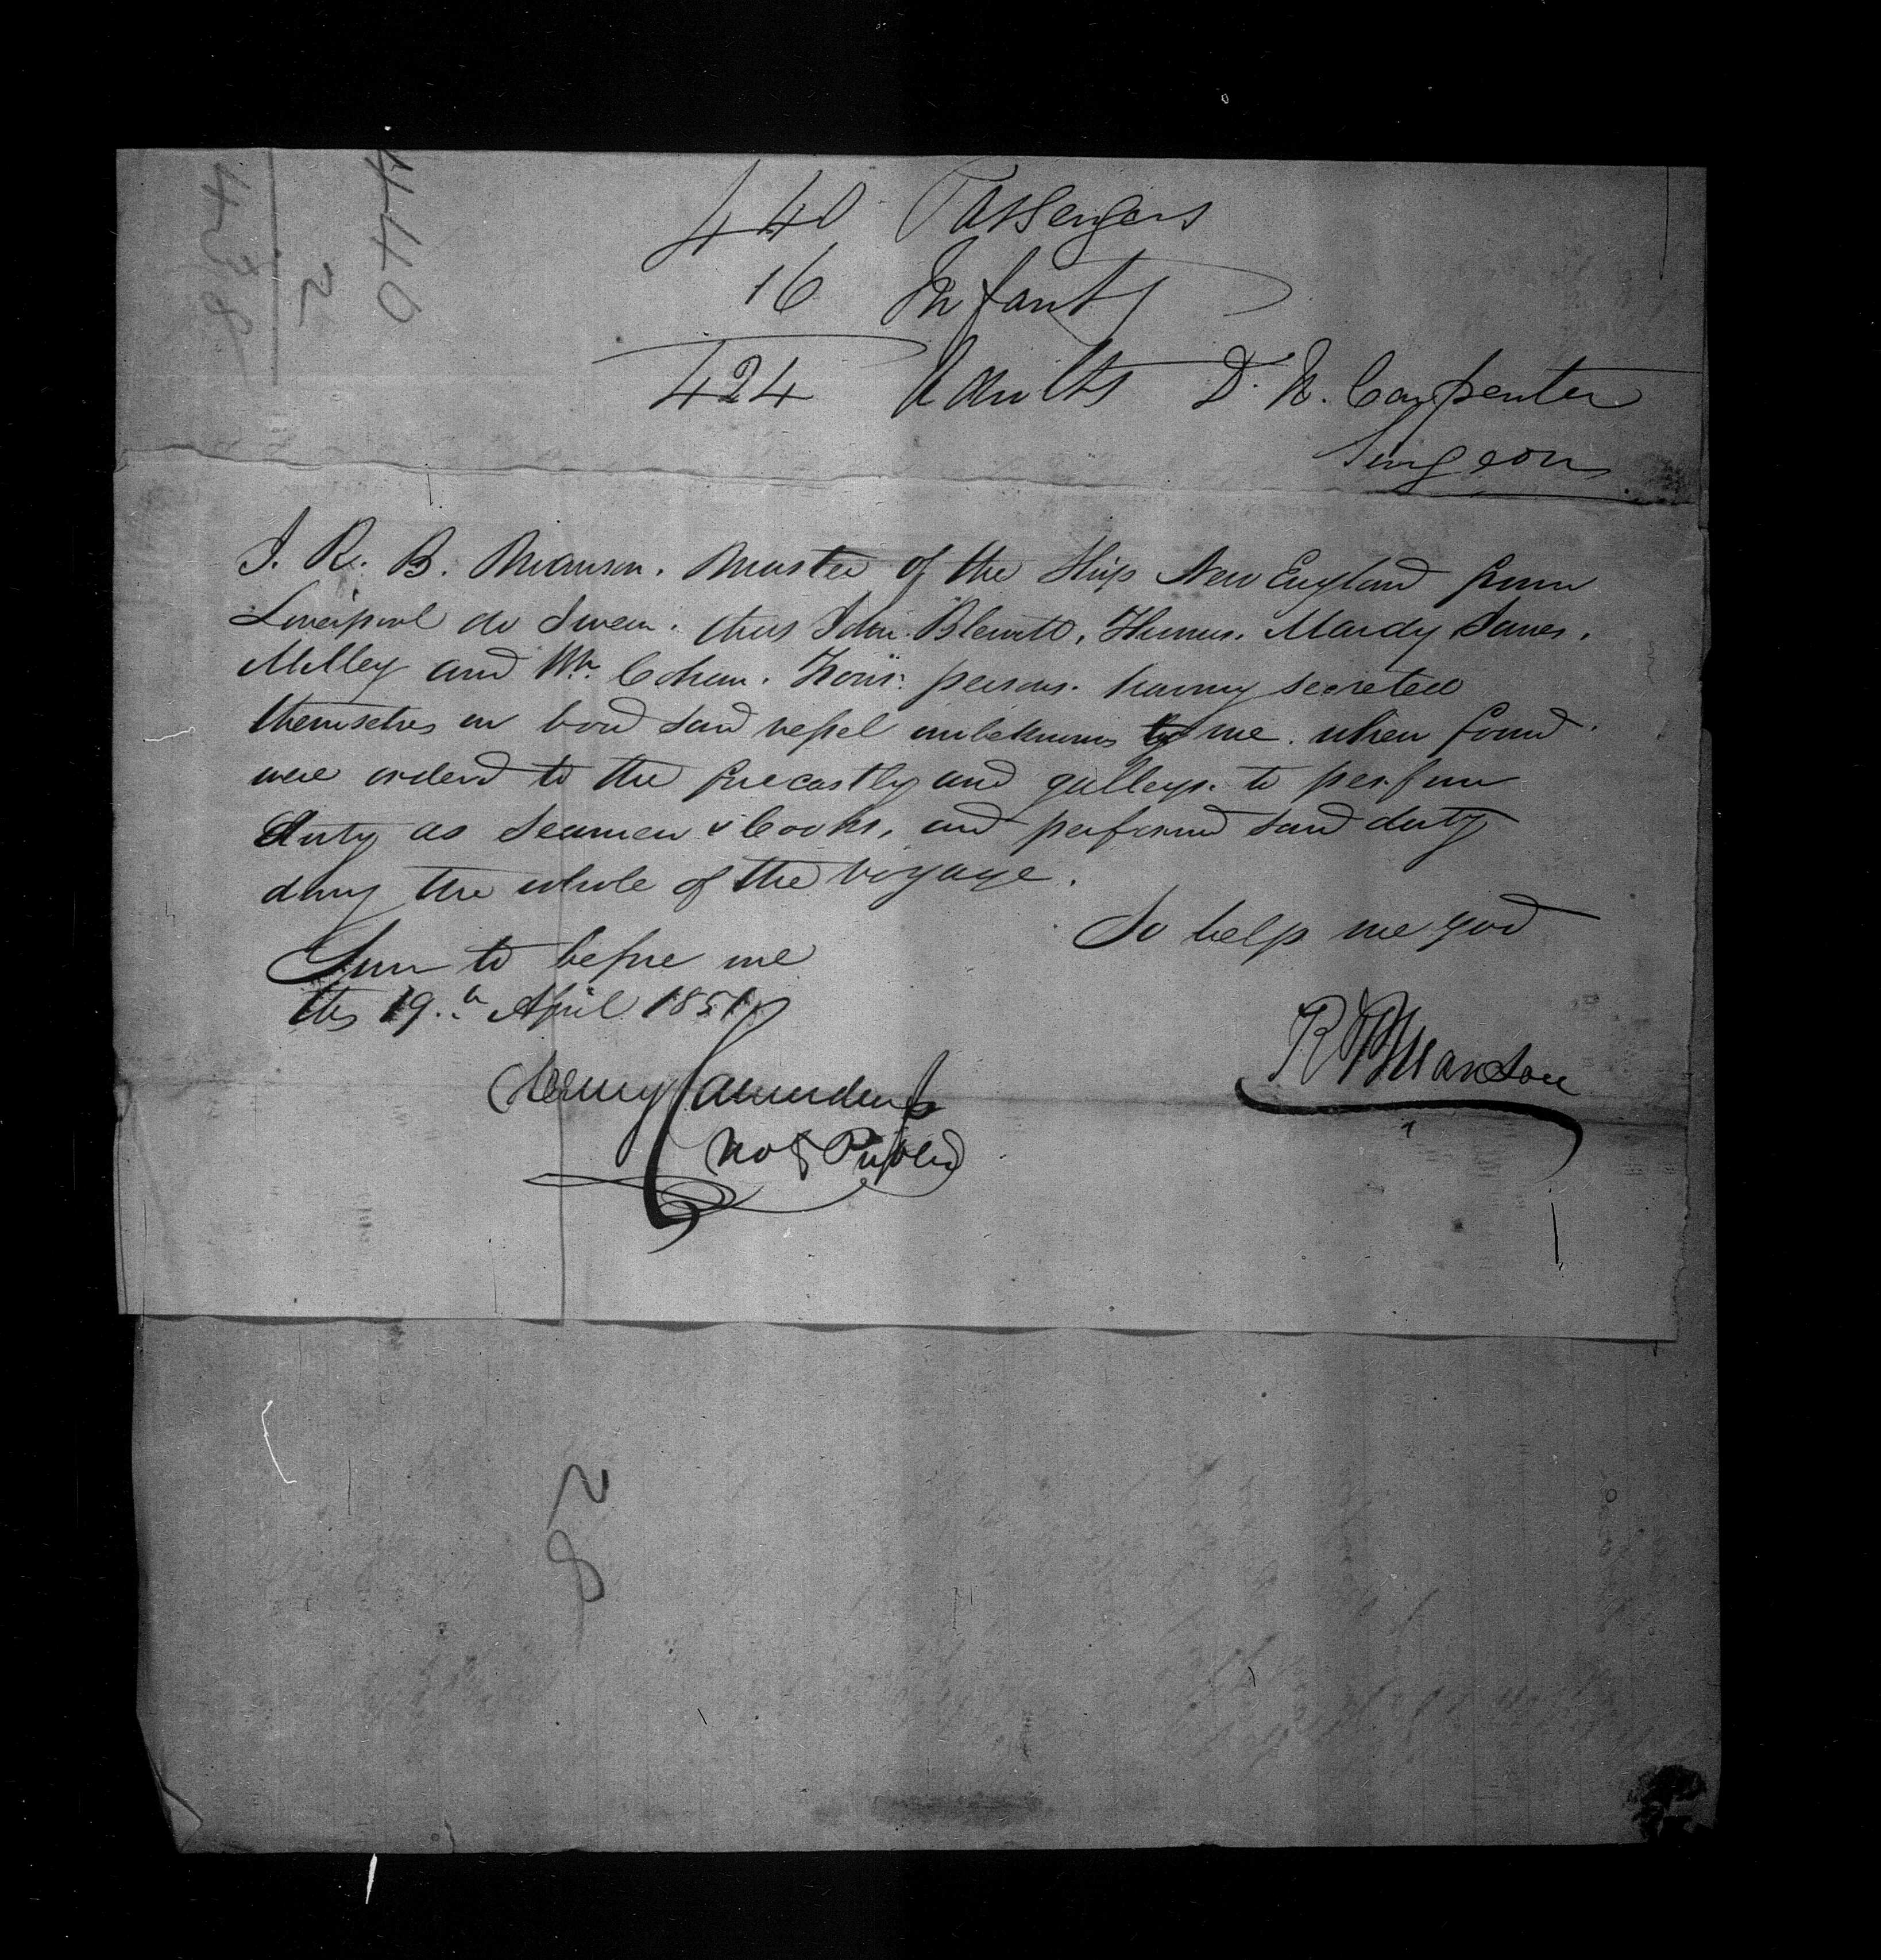 440 Passengers
16 Infants
424 Adults D. N. Carpenter
Surgeon
I. R. B. Manson. Master of the Ship New England from
Liverpool do Swear. that John Blewitt, Thomas. Mardy James.
Milley and Wm. Cohan. Four. persons. having secreted
themselves on board said vessel unbeknown to me. when found
were orderd to the forecastle and galleys. to perform
duty as Seamen & Cooks, and performd said duty
during the whole of the voyage.
So help me god
Sworn to before me
this 19.th April 1851
R B Manson
Henry Saunders
Not Public
440
2
438
28